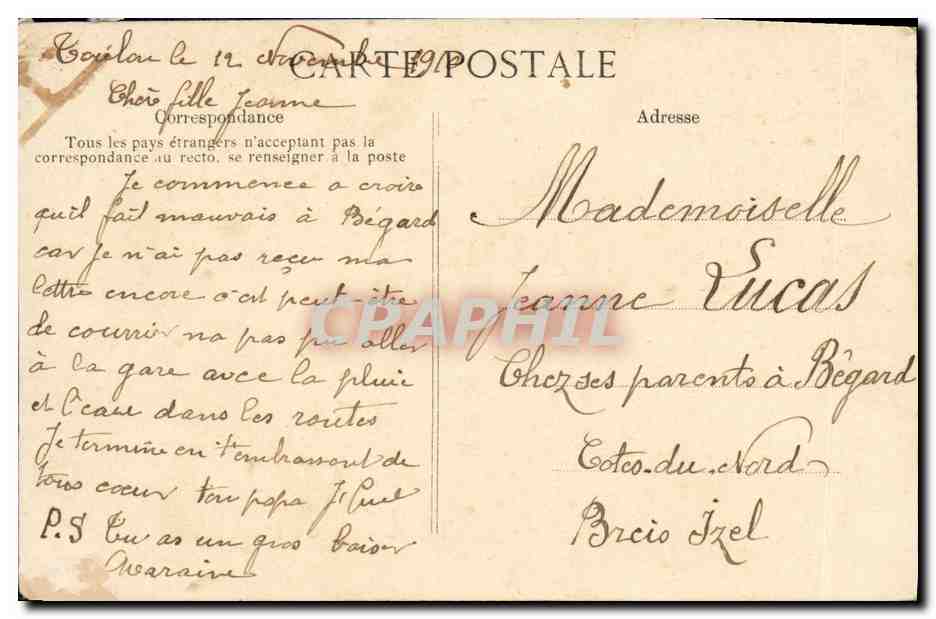 Toulon le 12 Novembre 1910
CARTE POSTALE
Chère fille Jeanne
Correspondance
Tous les pays étrangers n'acceptant pas la
correspondance au recto, se renseigner à la poste
Je commence a croire
quil fait mauvais à Bégard
car Je n'ai pas reçu ma
lettre encore c'est peut-être
de courrir na pas pu aller
à la gare avec la pluie
et l'eau dans les routes
Je termine en t'embrassant de
tous coeur ton papa
P.S Tu as un gros baiser
Maraine
Adresse
Mademoiselle
Jeanne Lucas
Chez ses parents à Bégard
Cotes-du-Nord
Breis Izel
CPAPHIL